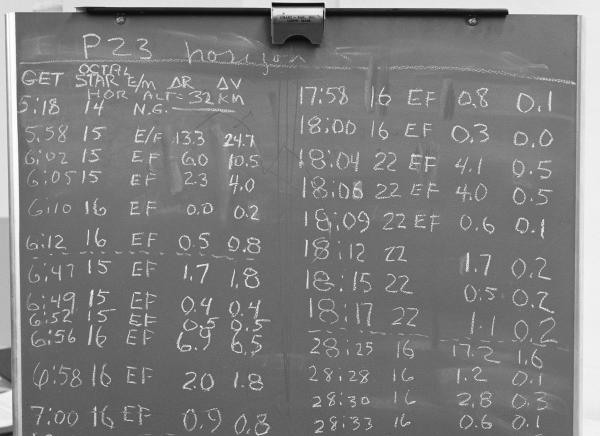 P23 horizon
GET OCTAL STAR E/m ΔR ΔV
HOR ALT - 32 KM
5:18 14 N.G.
5:58 15 E/F 13.3 24.7
6:02 15 EF 6.0 10.5
6:05 15 EF 2.3 4.0
6:10 16 EF 0.0 0.2
6:12 16 EF 0.5 0.8
6:47 15 EF 1.7 1.8
6:49 15 EF 0.4 0.4
6:52 15 EF 0.5 0.5
6:56 16 EF 6.9 6.5
6:58 16 EF 2.0 1.8
7:00 16 EF 0.9 0.8
17:58 16 EF 0.8 0.1
18:00 16 EF 0.3 0.0
18:04 22 EF 4.1 0.5
18:06 22 EF 4.0 0.5
18:09 22 EF 0.6 0.1
18:12 22 1.7 0.2
18:15 22 0.5 0.2
18:17 22 1.1 0.2
28:25 16 17.2 1.6
28:28 16 1.2 0.1
28:30 16 2.8 0.3
28:33 16 0.6 0.1